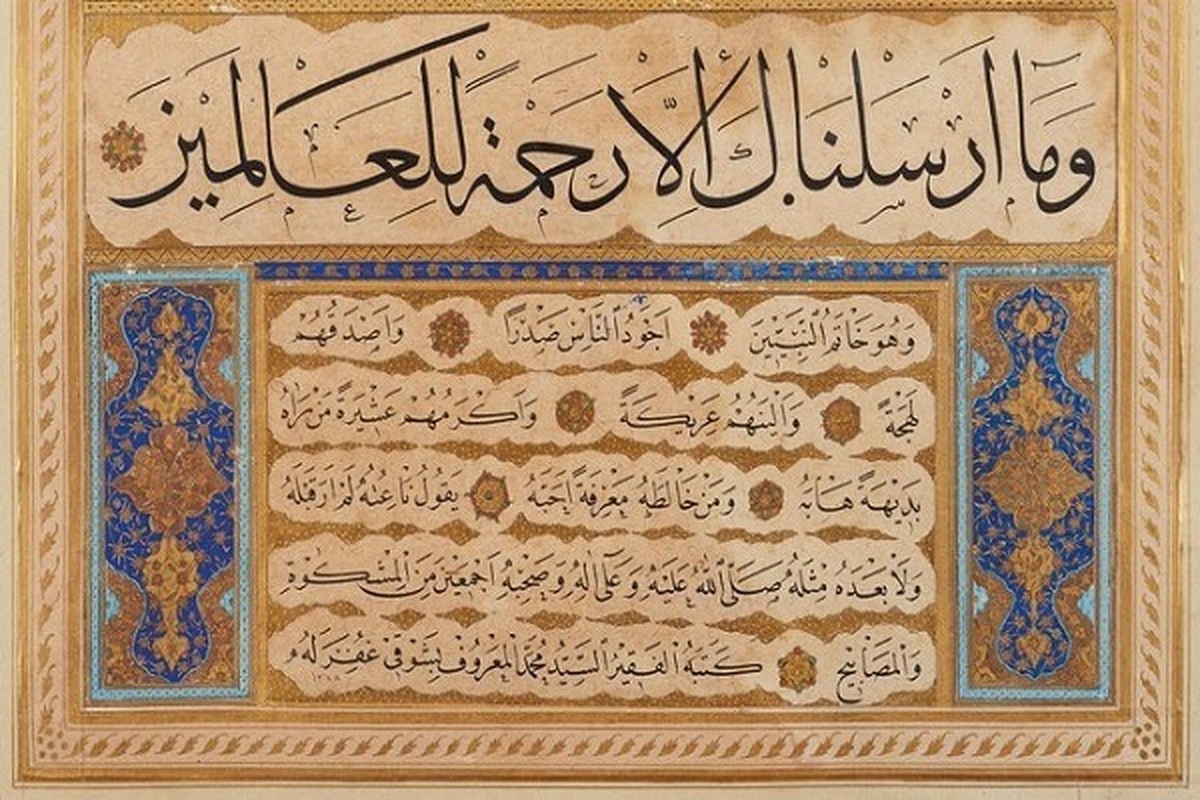 وَمَا أَرْسَلْنَاكَ إِلَّا رَحْمَةً لِلْعَالَمِينَ
وَهُوَ خَاتَمُ النَّبِيِّينَ اَجْوَدُ النَّاسِ صَدْرًا وَاَصْدَقُهُمْ
لَهْجَةً وَاَلْيَنُهُمْ عَرِيكَةً وَاَكْرَمُهُمْ عَشِيرَةً مَنْ رَاٰهُ
بَدِيهَةً هَابَهُ وَمَنْ خَالَطَهُ مَعْرِفَةً اَحَبَّهُ يَقُولُ نَاعِتُهُ لَمْ اَرَ قَبْلَهُ
وَلَا بَعْدَهُ مِثْلَهُ صَلَّى اللهُ عَلَيْهِ وَعَلَى اٰلِهِ وَصَحْبِهِ اَجْمَعِينَ مِنَ الْمِشْكٰوةِ
وَالْمَصَابِيحِ كَتَبَهُ الْفَقِيرُ السَّيِّدُ مُحَمَّدُ الْمَعْرُوفُ بِشَوْقِي غُفِرَ لَهُ